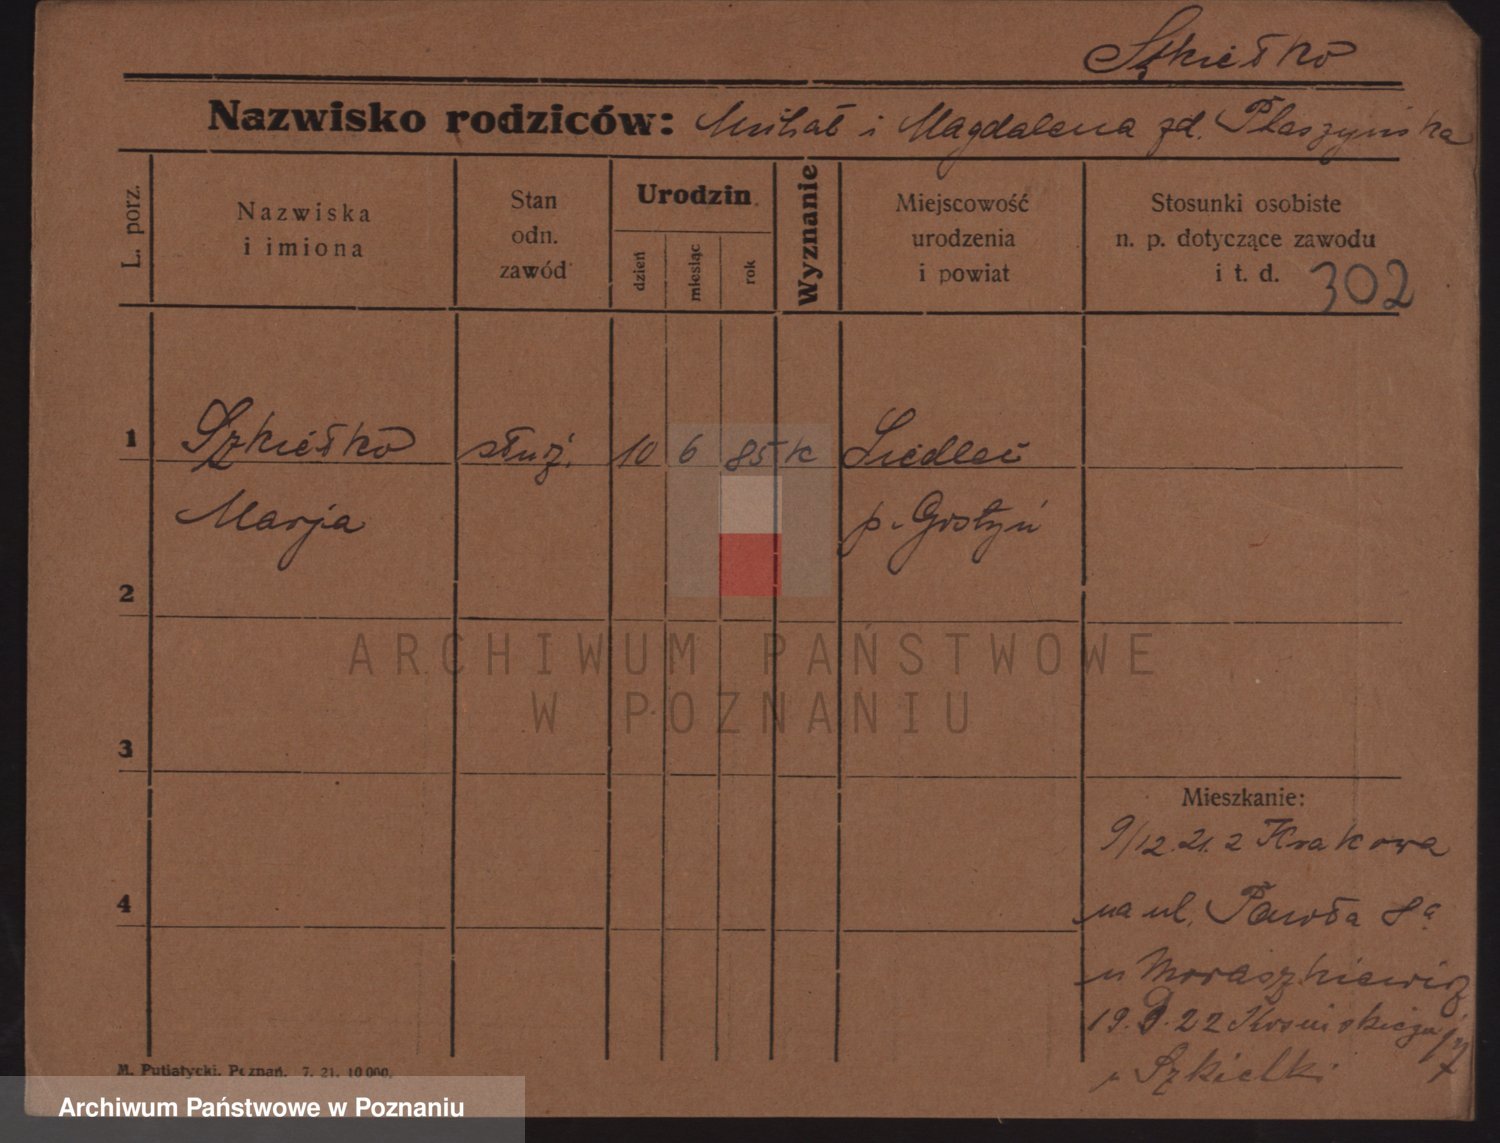 Szkiełko
Nazwisko rodziców: Michał i Magdalena zd. Płaszyńska
L. porz.
Nazwiska
i imiona
Stan
odn.
zawód
Urodzin
dzień
miesiąc
rok
Wyznanie
Miejscowość
urodzenia
i powiat
Stosunki osobiste
n. p. dotyczące zawodu
i t. d.
302
1 Szkiełko służ. 10 6 85 k Siedlec
Marja p. Gostyń
2
3
4
Mieszkanie:
9/12.21. z Krakowa
na ul. Pawła 8a
u Moraszkiewicz
19. 22 Kosińskiego
u Szkielki
M. Putiatycki, Poznań. 7. 21. 10 000.
ARCHIWUM PAŃSTWOWE
W POZNANIU
Archiwum Państwowe w Poznaniu